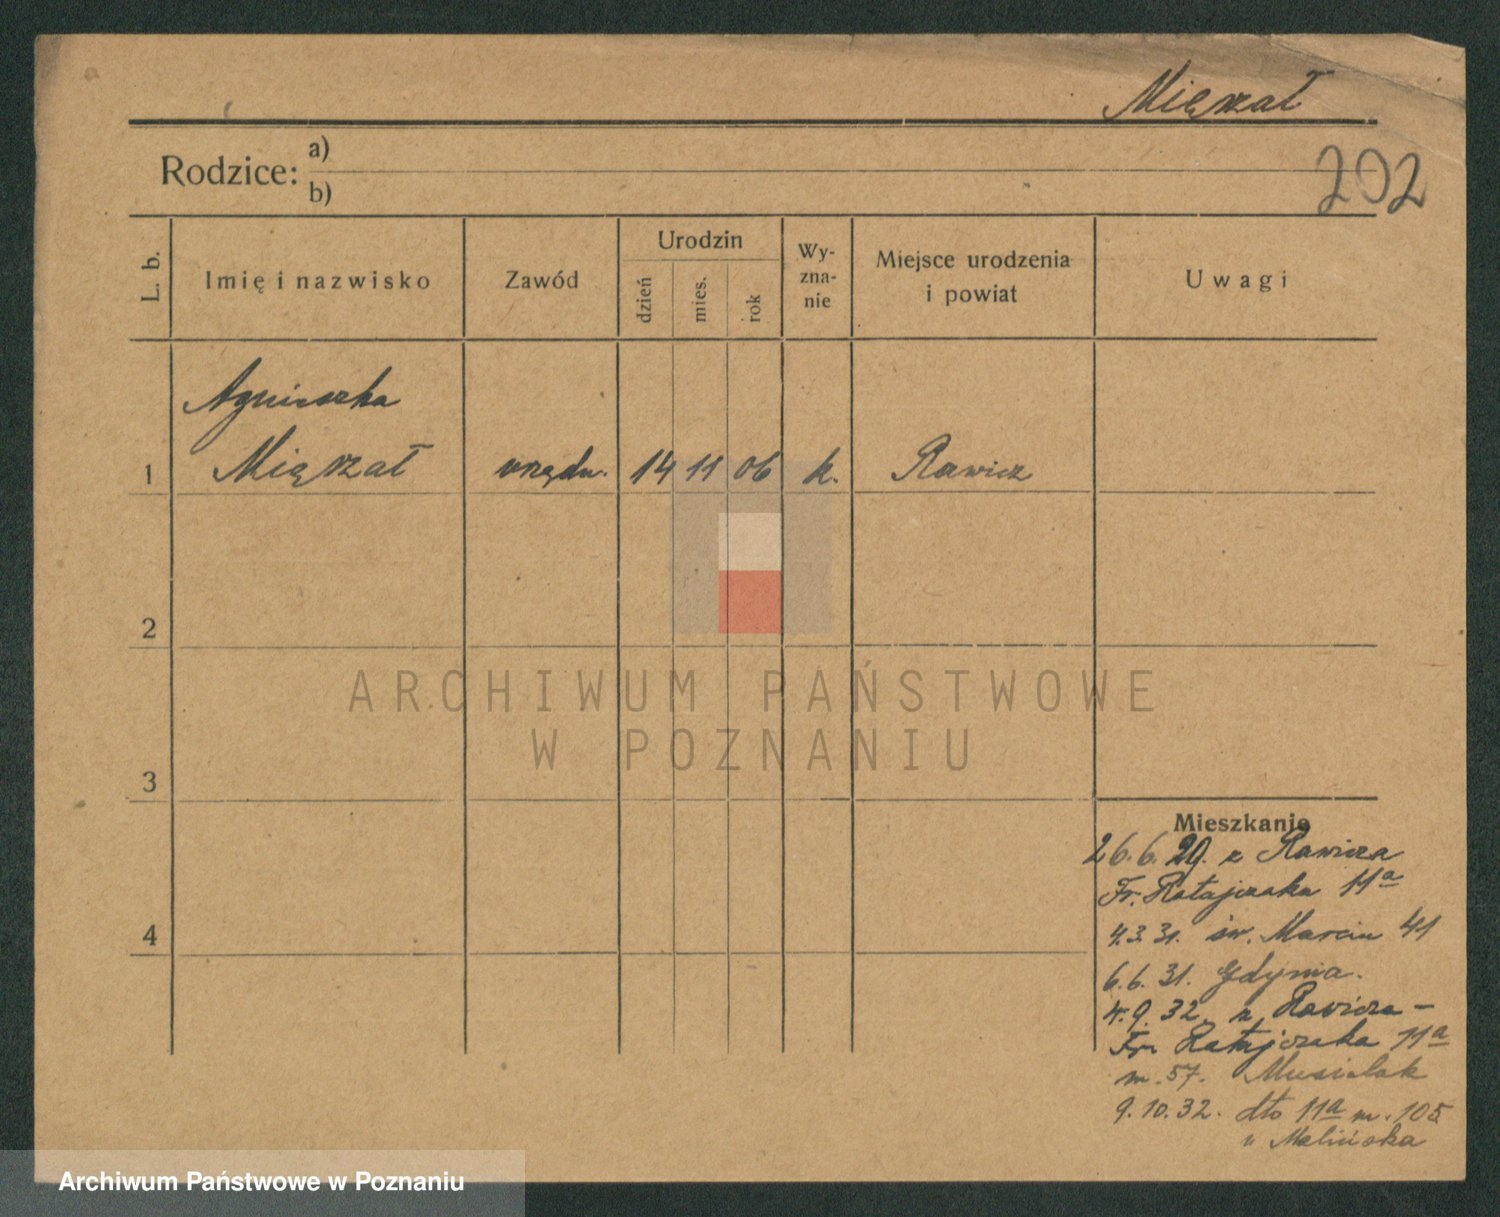 Mięszał
202
Rodzice: a)
b)
L. b.
Imię i nazwisko
Zawód
Urodzin
dzień
mies.
rok
Wy-
zna-
nie
Miejsce urodzenia
i powiat
Uwagi
Agnieszka
1 Mięszał urzędn. 14 11 06 k. Rawicz
2
3
4
Mieszkanie
26.6.29. z Rawicza
Fr. Ratajczaka 11a
4.3.31. św. Marcin 41
6.6.31. Gdynia.
4.9.32. z Rawicza -
Fr. Ratajczaka 11a
m. 57. Musielak
9.10.32. dto 11a m. 105
u Malińska
ARCHIWUM PAŃSTWOWE
W POZNANIU
Archiwum Państwowe w Poznaniu